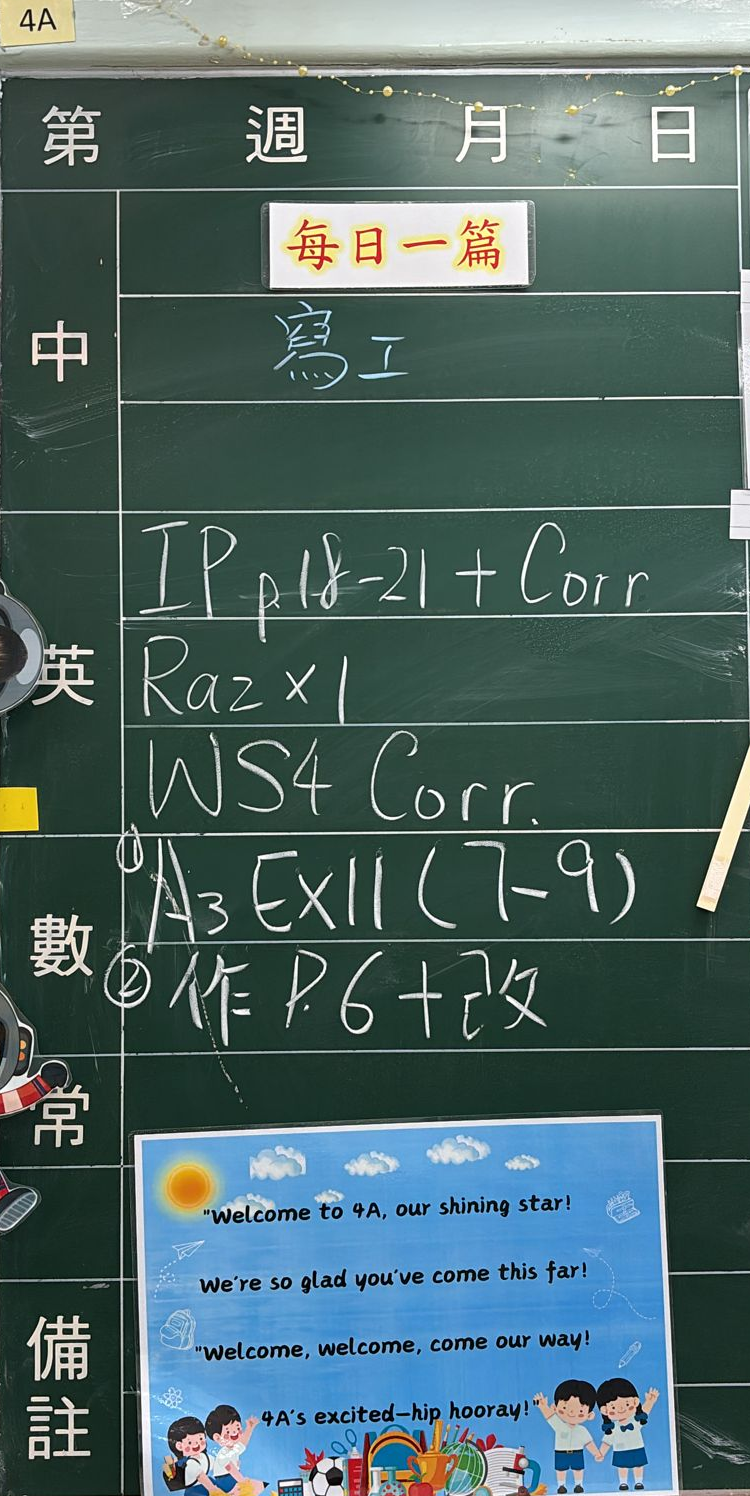 4A
第 週 月 日
每日一篇
中
寫工
英
IP p18-21 + Corr
Raz ×1
WS4 Corr.
數
① A3 Ex11 (7-9)
② 作 P.6 + 改
常
備註
"Welcome to 4A, our shining star!
We're so glad you've come this far!
"Welcome, welcome, come our way!
4A's excited—hip hooray!"